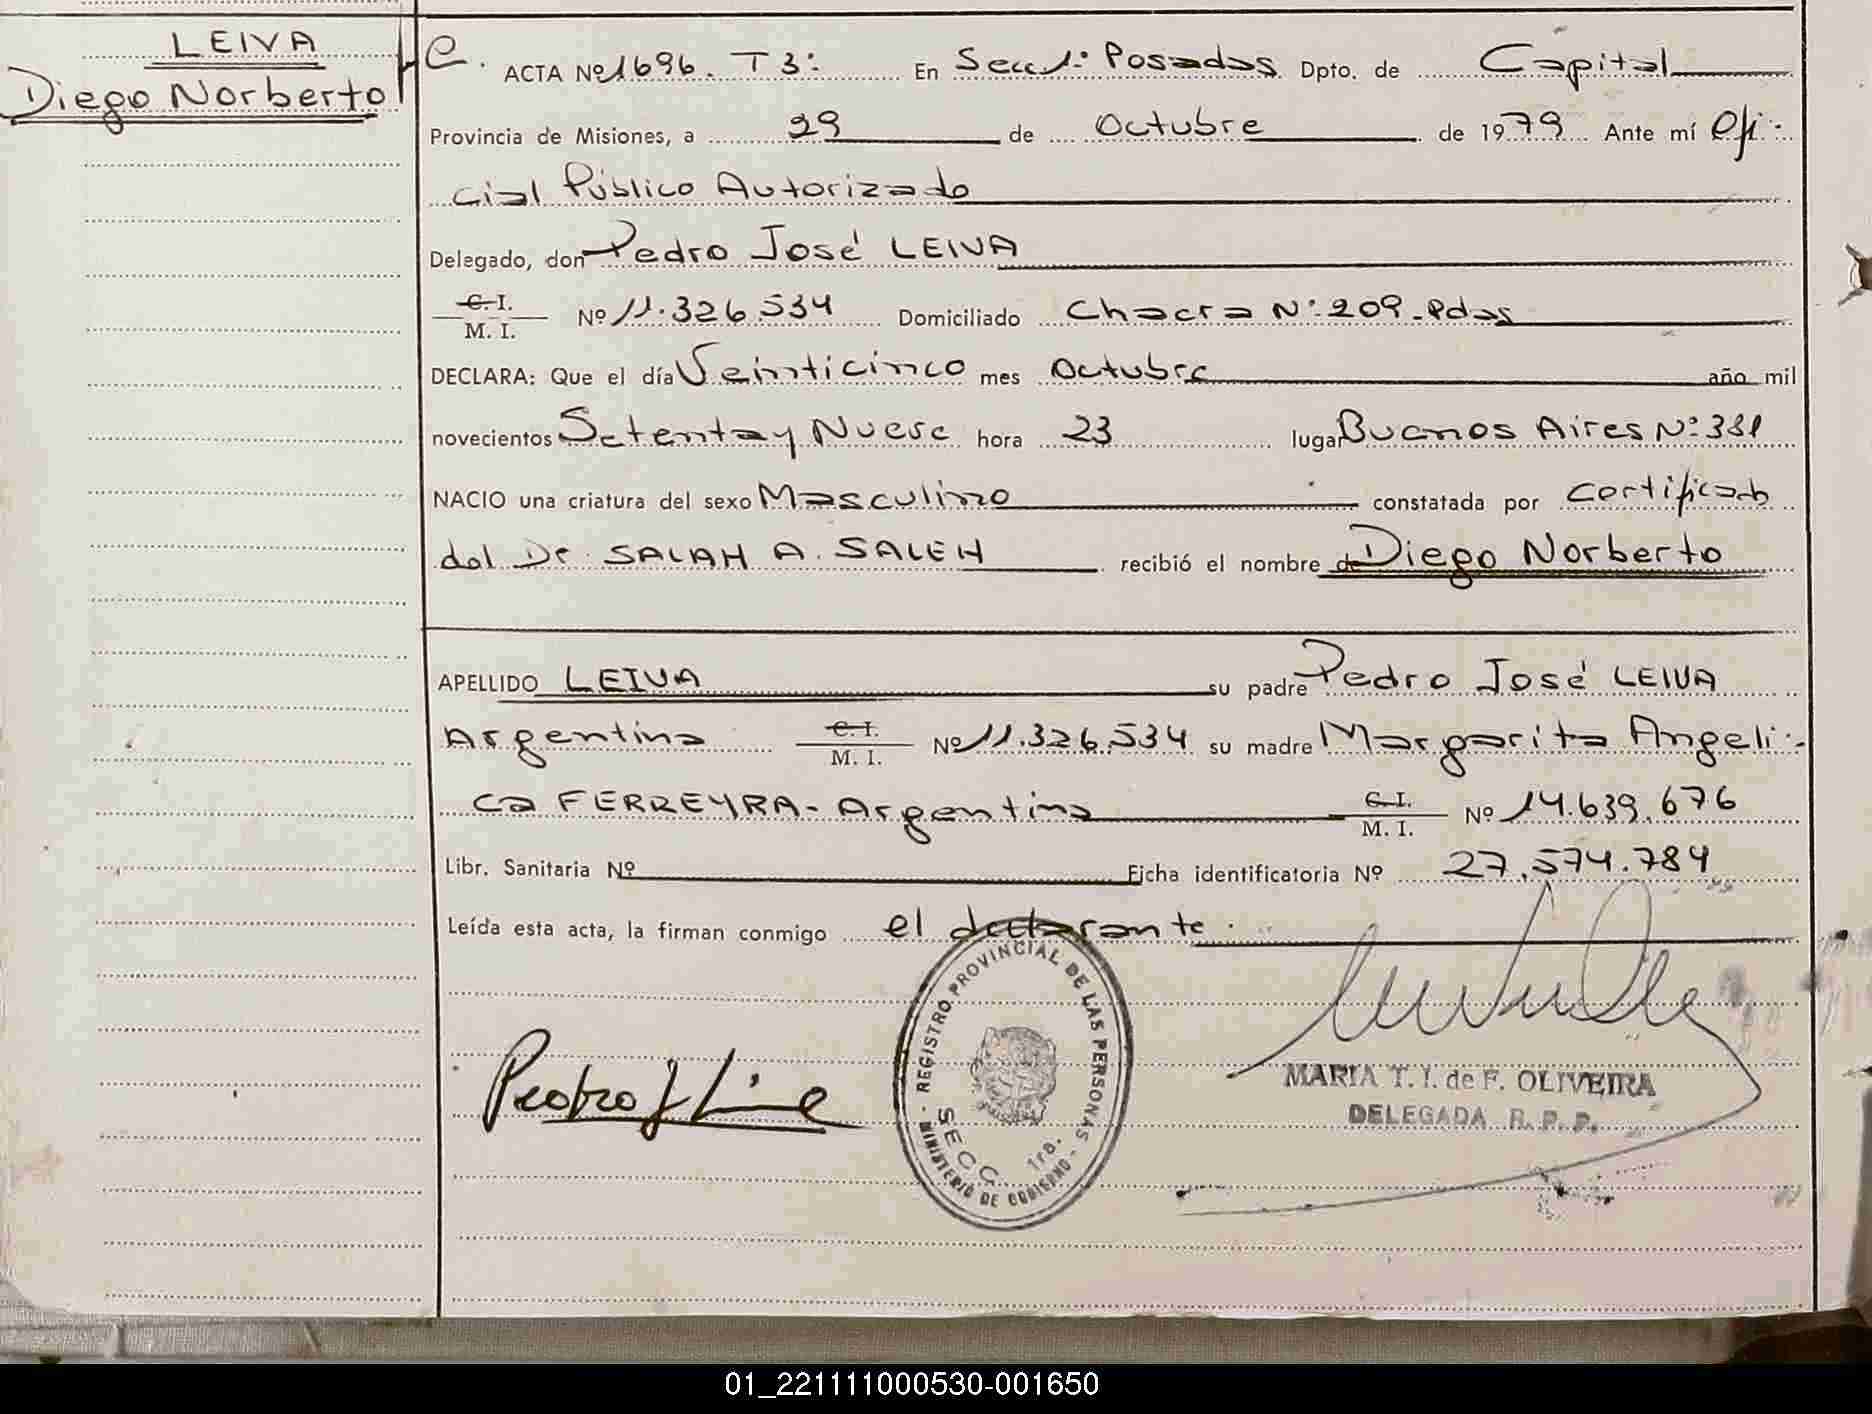 LEIVA
Diego Norberto
ACTA Nº 1696. T 3: En Secc 1: Posadas Dpto. de Capital
Provincia de Misiones, a 29 de Octubre de 1979 Ante mí Ofi-
cial Público Autorizado
Delegado, don Pedro José LEIVA
C. I. M. I. Nº 11.326.534 Domiciliado Chacra Nº 209-Pdas
DECLARA: Que el día Veinticinco mes Octubre año mil
novecientos Setenta y Nueve hora 23 lugar Buenos Aires Nº 381
NACIO una criatura del sexo Masculino constatada por certificado
del Dr. SALAH A. SALEH recibió el nombre de Diego Norberto
APELLIDO LEIVA su padre Pedro José LEIVA
Argentina C. I. M. I. Nº 11.326.534 su madre Margarita Angeli-
ca FERREYRA- Argentina C. I. M. I. Nº 14.639.676
Libr. Sanitaria Nº Ficha identificatoria Nº 27.574.784
Leída esta acta, la firman conmigo el declarante.
REGISTRO PROVINCIAL DE LAS PERSONAS - MINISTERIO DE GOBIERNO -
SECC. 1ra.
Pedro J
MARIA T. I. de F. OLIVEIRA
DELEGADA R. P. P.
01_221111000530-001650